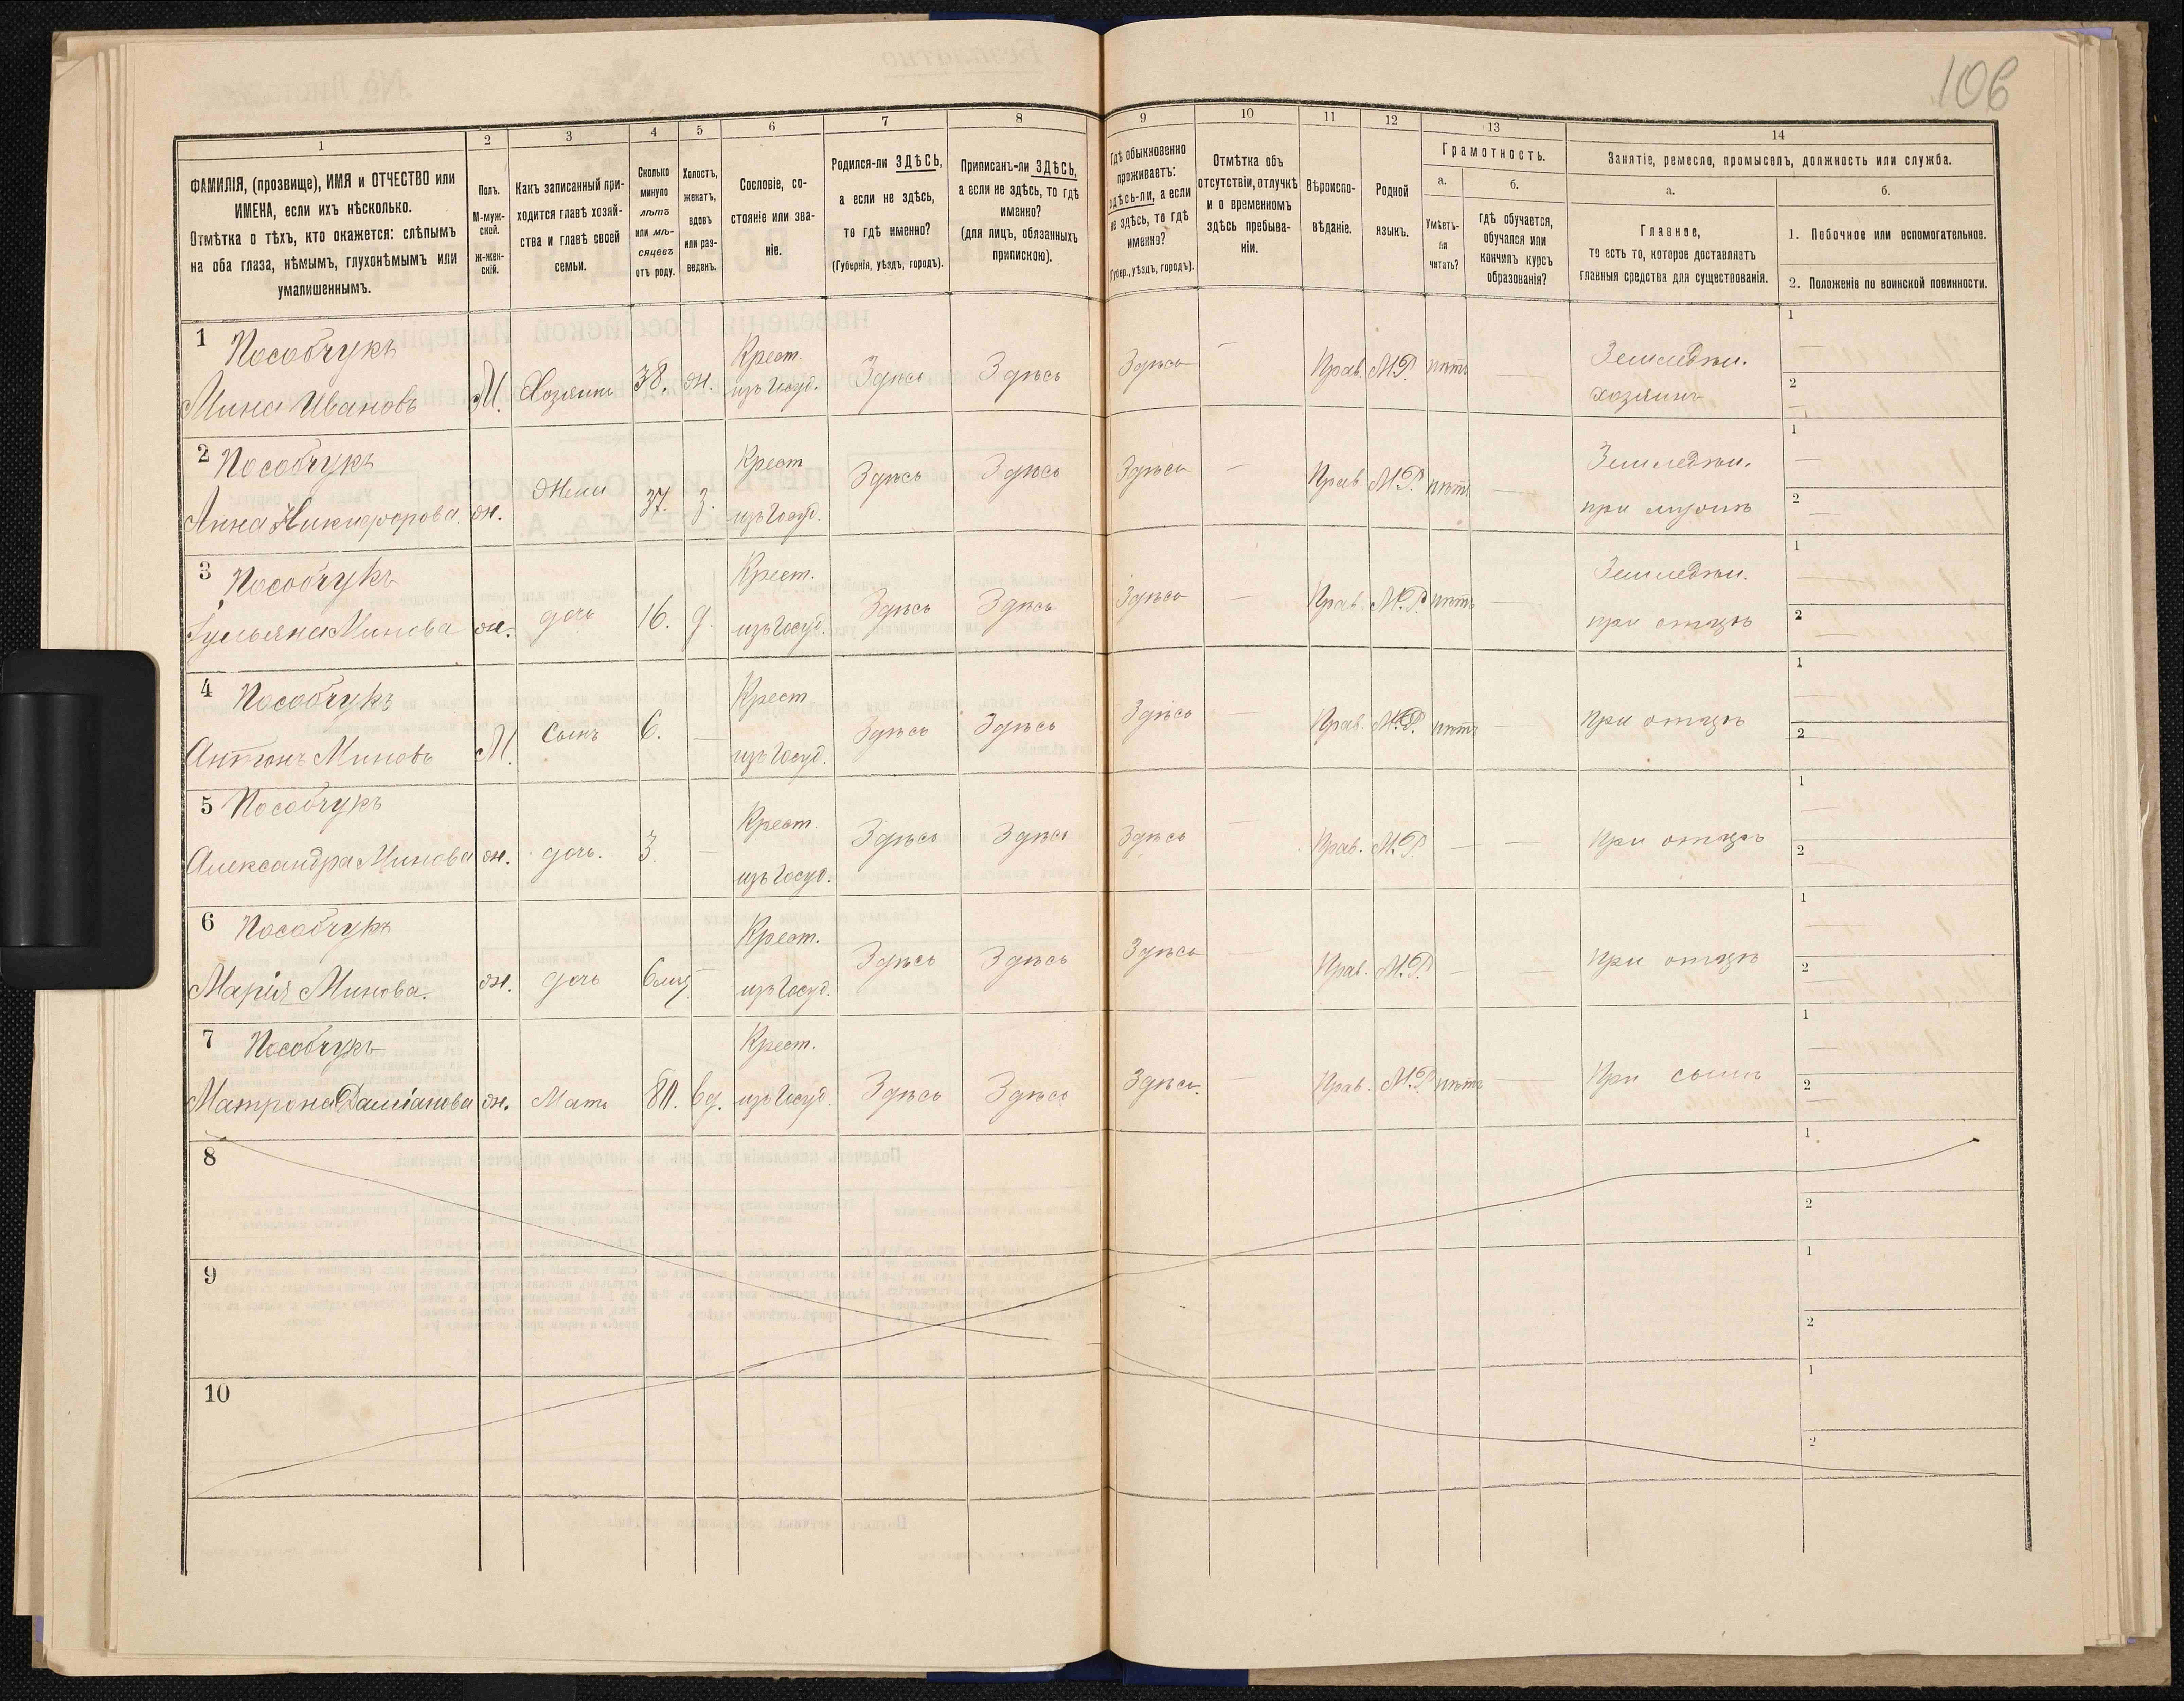 106
1
2
3
4
5
6
7
8
9
10
11
12
13
14
ФАМИЛІЯ, (прозвище), ИМЯ и ОТЧЕСТВО или
ИМЕНА, если ихъ нѣсколько.
Отмѣтка о тѣхъ, кто окажется: слѣпымъ
на оба глаза, нѣмымъ, глухонѣмымъ или
умалишеннымъ.
Полъ.
М-муж-
ской.
Ж-жен-
скій.
Какъ записанный при-
ходится главѣ хозяй-
ства и главѣ своей
семьи.
Сколько
минуло
лѣтъ
или мѣ-
сяцевъ
отъ роду.
Холостъ,
женатъ,
вдовъ
или раз-
веденъ.
Сословіе, со-
стояніе или зва-
ніе.
Родился-ли ЗДѢСЬ,
а если не здѣсь,
то гдѣ именно?
(Губернія, уѣздъ, городъ).
Приписанъ-ли ЗДѢСЬ,
а если не здѣсь, то гдѣ
именно?
(для лицъ, обязанныхъ
припискою).
Гдѣ обыкновенно
проживаетъ:
здѣсь-ли, а если
не здѣсь, то гдѣ
именно?
(Губер., уѣздъ, городъ).
Отмѣтка объ
отсутствіи, отлучкѣ
и о временномъ
здѣсь пребыва-
ніи.
Вѣроиспо-
вѣданіе.
Родной
языкъ.
Грамотность.
а.
Умѣетъ-
ли
читать?
б.
гдѣ обучается,
обучался или
кончилъ курсъ
образованія?
Занятіе, ремесло, промыселъ, должность или служба.
а.
Главное,
то есть то, которое доставляетъ
главныя средства для существованія.
б.
1. Побочное или вспомогательное.
2. Положеніе по воинской повинности.
1 Пособчукъ
Мина Ивановъ М. Хозяинъ 38. ж. Крест. изъ Госуд. Здѣсь Здѣсь Здѣсь — Прав. М.Р. нѣтъ — Земледѣл. хозяинъ 1 — 2 —
2 Пособчукъ
Анна Никифорова ж. Жена 37. з. Крест изъ Госуд. Здѣсь Здѣсь Здѣсь — Прав. М.Р. нѣтъ — Земледѣл. при мужѣ 1 — 2 —
3 Пособчукъ
Ульяна Минова ж. дочь 16. д. Крест. изъ Госуд. Здѣсь Здѣсь Здѣсь — Прав. М.Р. нѣтъ — Земледѣл. при отцѣ 1 — 2 —
4 Пособчукъ
Антонъ Миновъ М. Сынъ 6. — Крест изъ Госуд. Здѣсь Здѣсь Здѣсь — Прав. М.Р. нѣтъ — при отцѣ 1 — 2 —
5 Пособчукъ
Александра Минова ж. дочь. 3. — Крест. изъ Госуд. Здѣсь Здѣсь Здѣсь — Прав. М.Р. — — При отцѣ 1 — 2 —
6 Пособчукъ
Марія Минова. ж. дочь 6 мц — Крест. изъ Госуд. Здѣсь Здѣсь Здѣсь — Прав. М.Р. — — При отцѣ 1 — 2 —
7 Пособчукъ
Матрона Даміанова ж. Мать 80. вд. Крест. изъ Госуд. Здѣсь Здѣсь Здѣсь. — Прав. М.Р. нѣтъ — При сынѣ 1 — 2 —
8 1 2
9 1 2
10 1 2